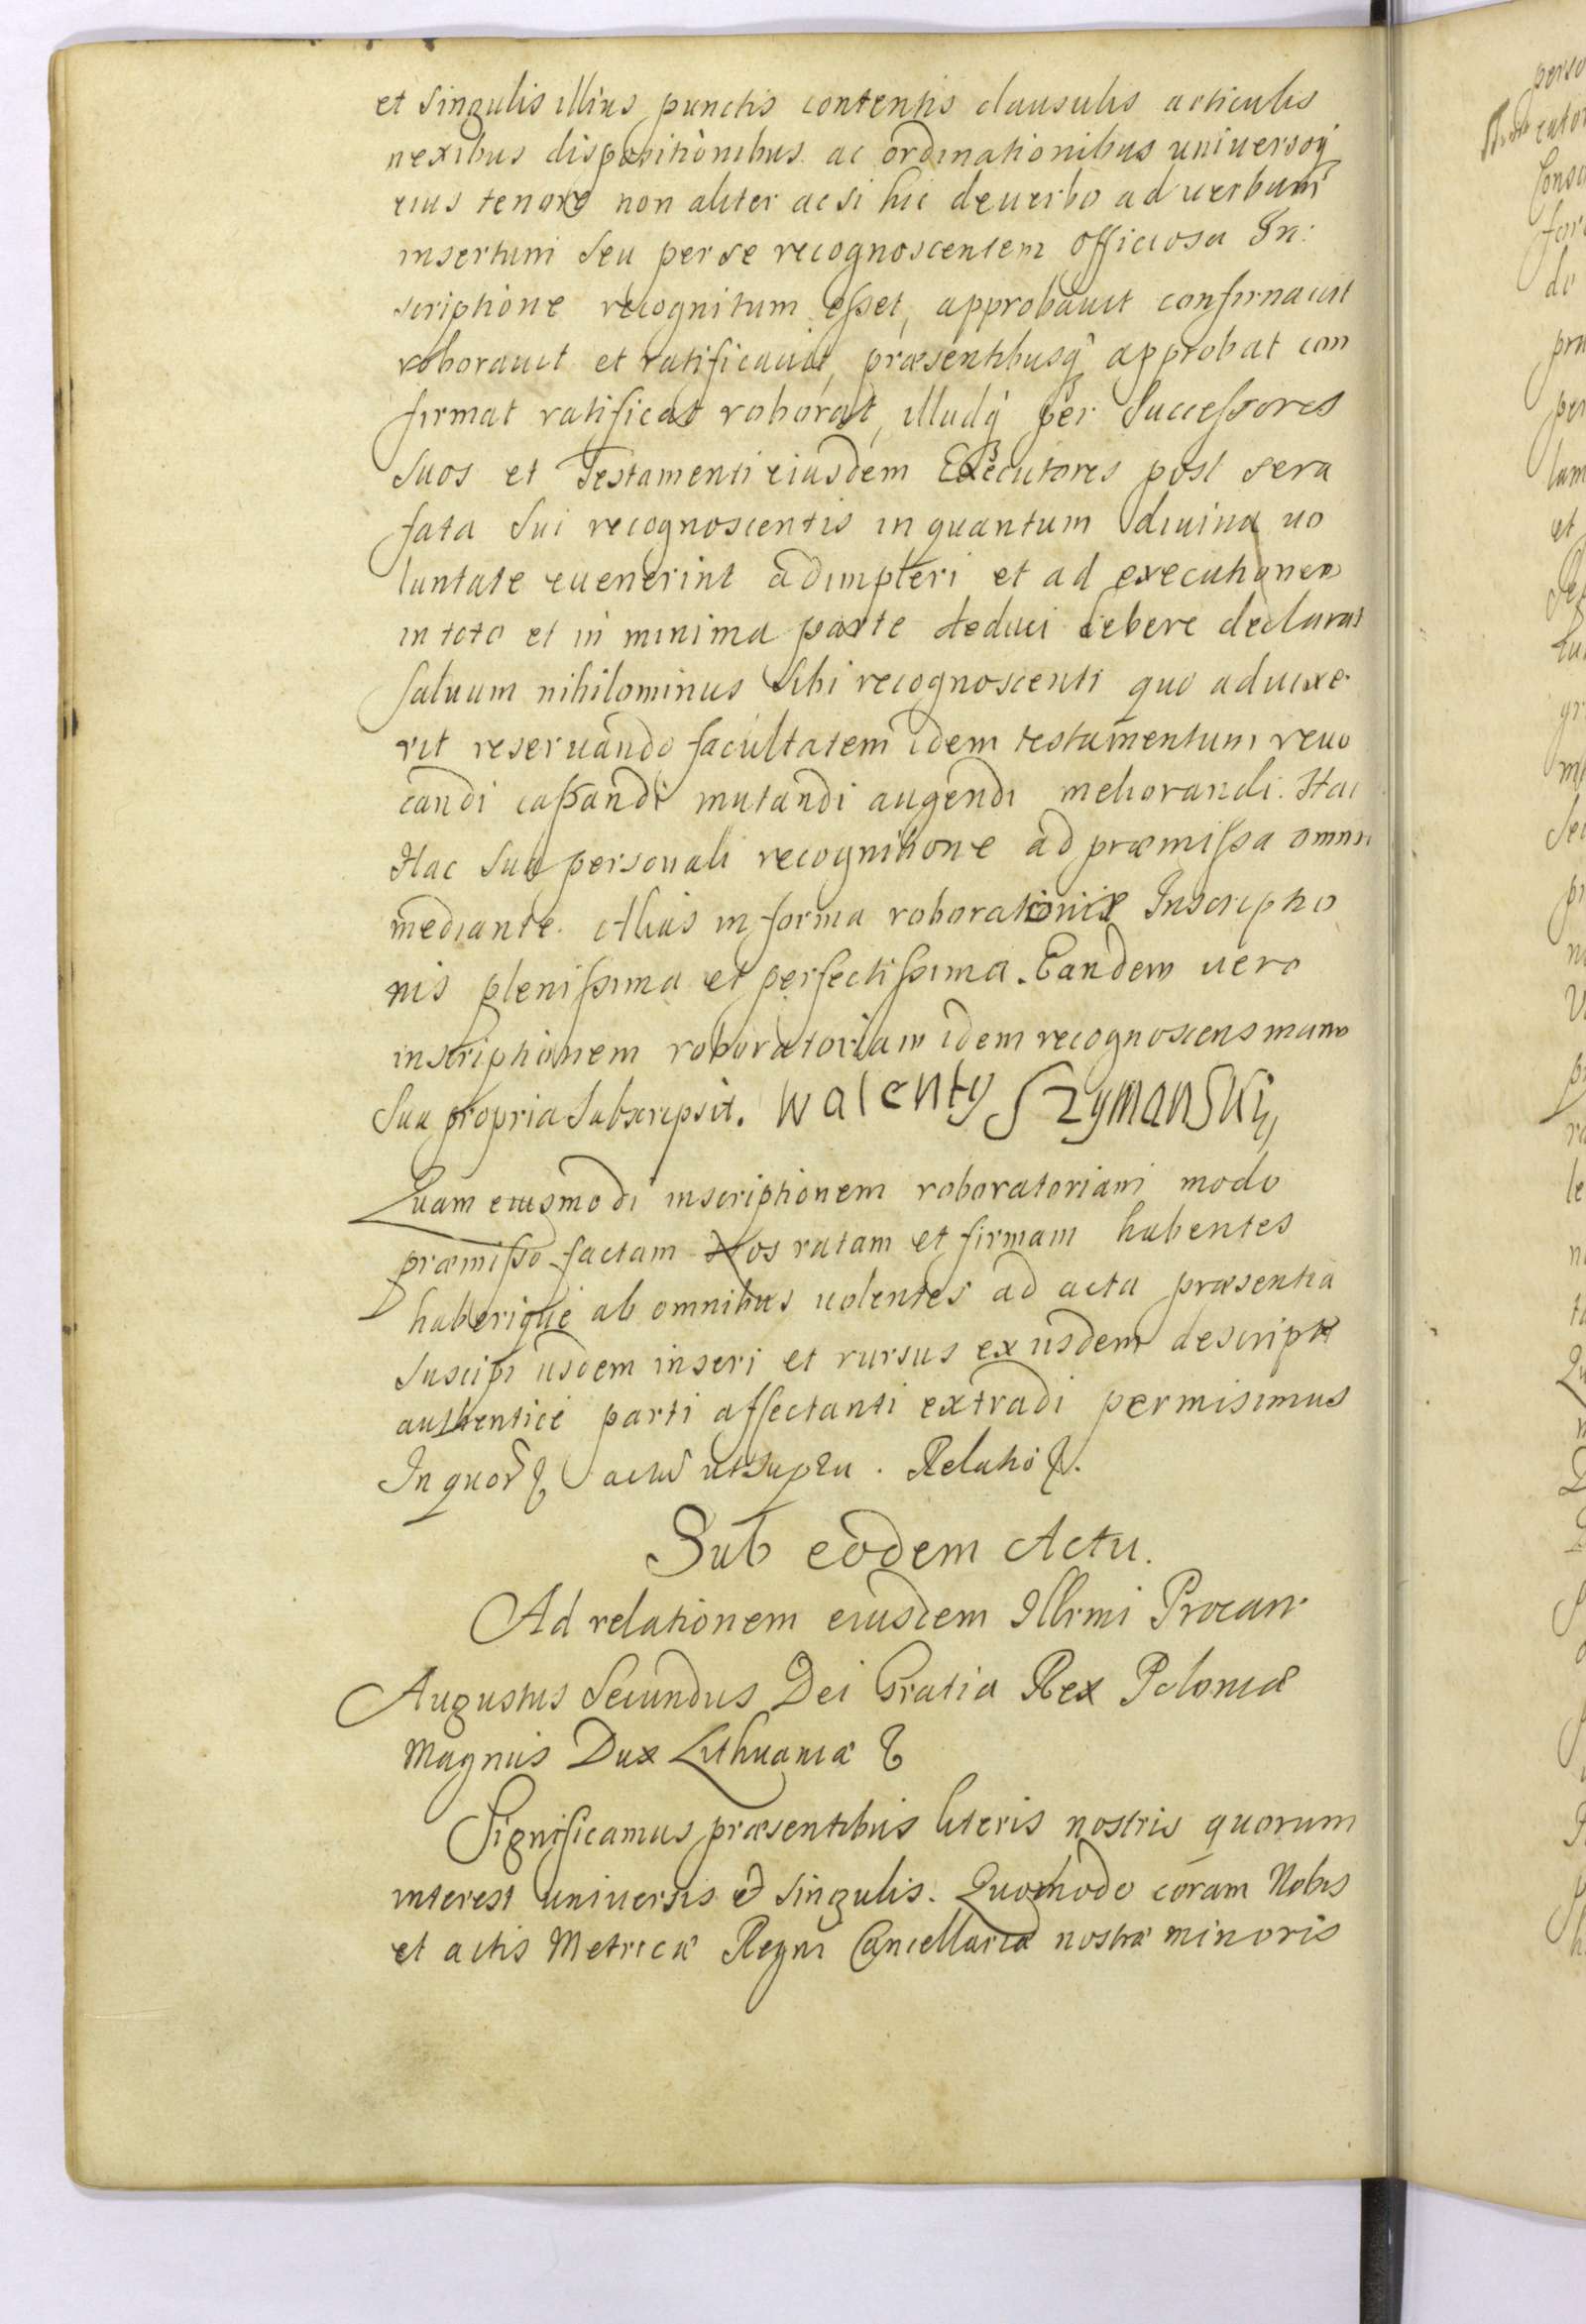 et singulis illius punctis contentis clausulis articulis
nexibus dispositionibus ac ordinationibus universoq́
eius tenore non aliter ac si hic de verbo ad verbum
insertum seu per se recognoscentem officiosa In:
scriptione recognitum esset, approbavit confirmavit
roboravit et ratificavit, præsentibusq́ approbat con
firmat ratificat roborat, illudq́ per Successores
Suos et Testamenti eiusdem Executores post sera
fata sui recognoscentis in quantum divina vo
luntate evenerint adimpleri et ad executionem
in toto et in minima parte deduci debere declarat
salvum nihilominus sibi recognoscenti quo aduixe
rit reservando facultatem idem testamentum revo
candi cassandi mutandi augendi meliorandi. Hac
Hac sua personali recognitione ad præmissa omnia
mediante. Alias in forma roborationis Inscriptio
nis plenissima et perfectissima. Eandem vero
inscriptionem roboratoriam idem recognoscens manu
sua propria subscripsit. walenty Szymanski,
Quam eiusmodi inscriptionem roboratoriam modo
præmisso factam Nos ratam et firmam habentes
haberique ab omnibus volentes ad acta præsentia
suscipi iisdem inseri et rursus ex iisdem descripte
authentice parti affectanti extradi permisimus
In quor̃ & actũ ut supra. Relatio &.
Sub eodem Actu.
Ad relationem eiusdem Illrmi Procan
Augustus Secundus Dei Gratia Rex Poloniæ
Magnus Dux Lithuaniæ &
Significamus præsentibus literis nostris quorum
interest universis et singulis. Quomodo coram Nobis
et actis Metricæ Regni Cancellariæ nostræ minoris